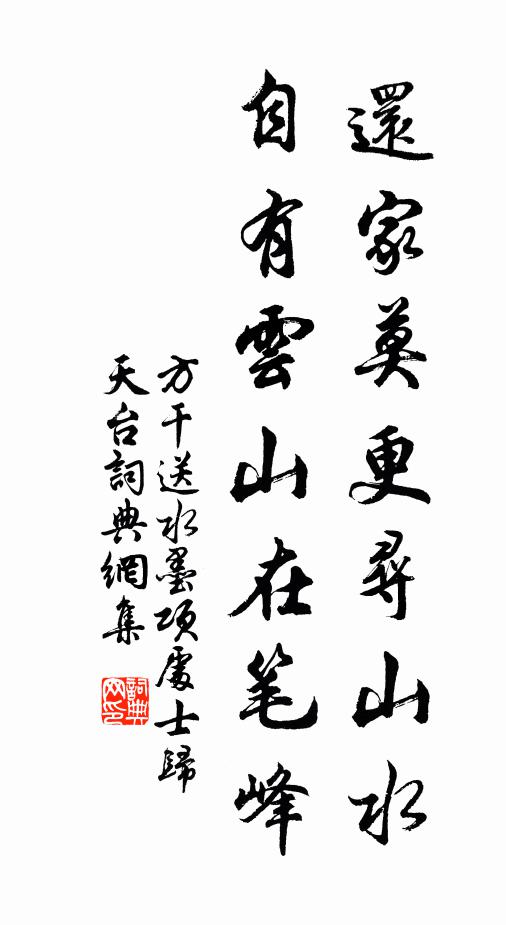 還家莫更尋山水
自有雲山在笔峰
方干送水墨項處士歸
天台詞典網集
詞典网印